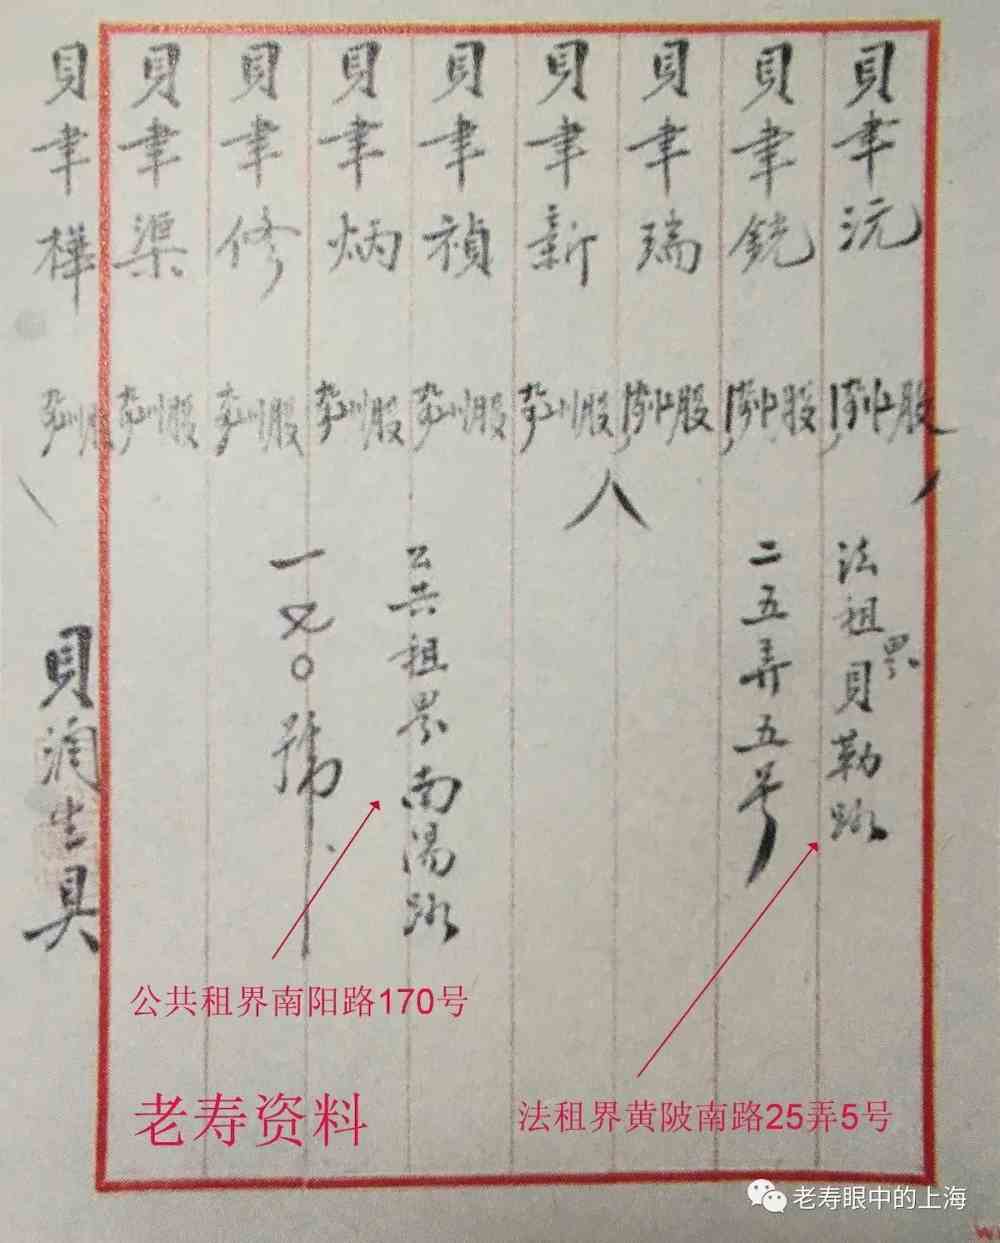 貝聿沅
貝聿銳
貝聿瑞
貝聿新
貝聿禎
貝聿炳
貝聿修
貝聿渠
貝聿樺
股
股
股
股
股
股
股
股
股
法租界貝勒路
二五弄五号
公共租界南陽路
一又〇號
貝潤生具
公共租界南阳路170号
法租界黄陂南路25弄5号
老寿资料
老寿眼中的上海